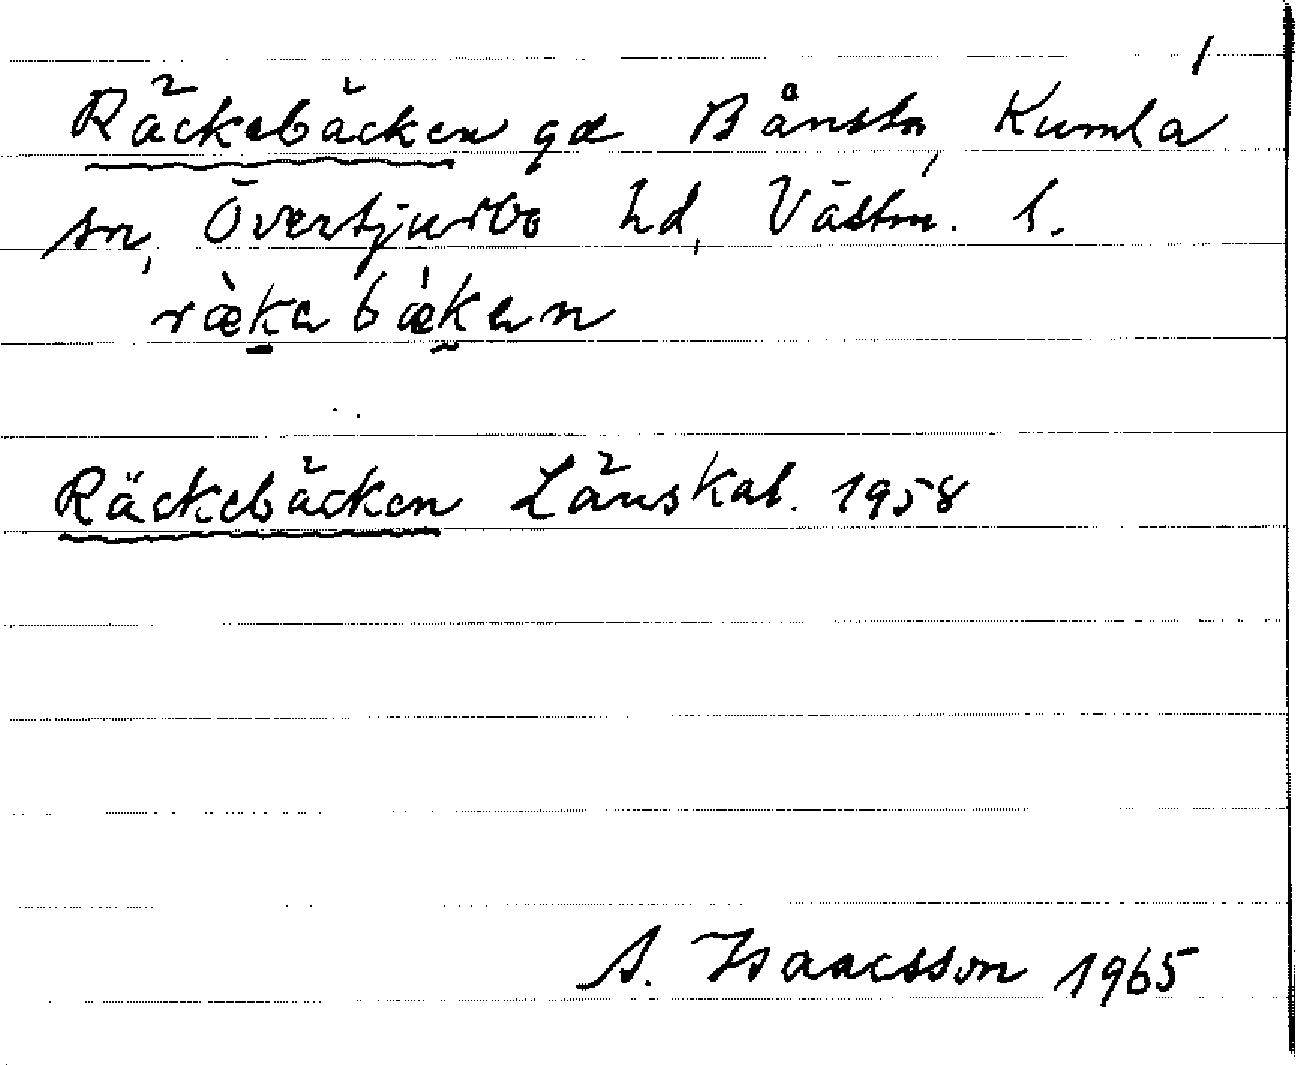 1
Räckebäcken gd Bånsta, Kumla
sn, Övertjurbo hd, Västm. l.
ræ̀ka bæ̀kan
Räckebäcken Länskat. 1958
A. Isaacsson 1965